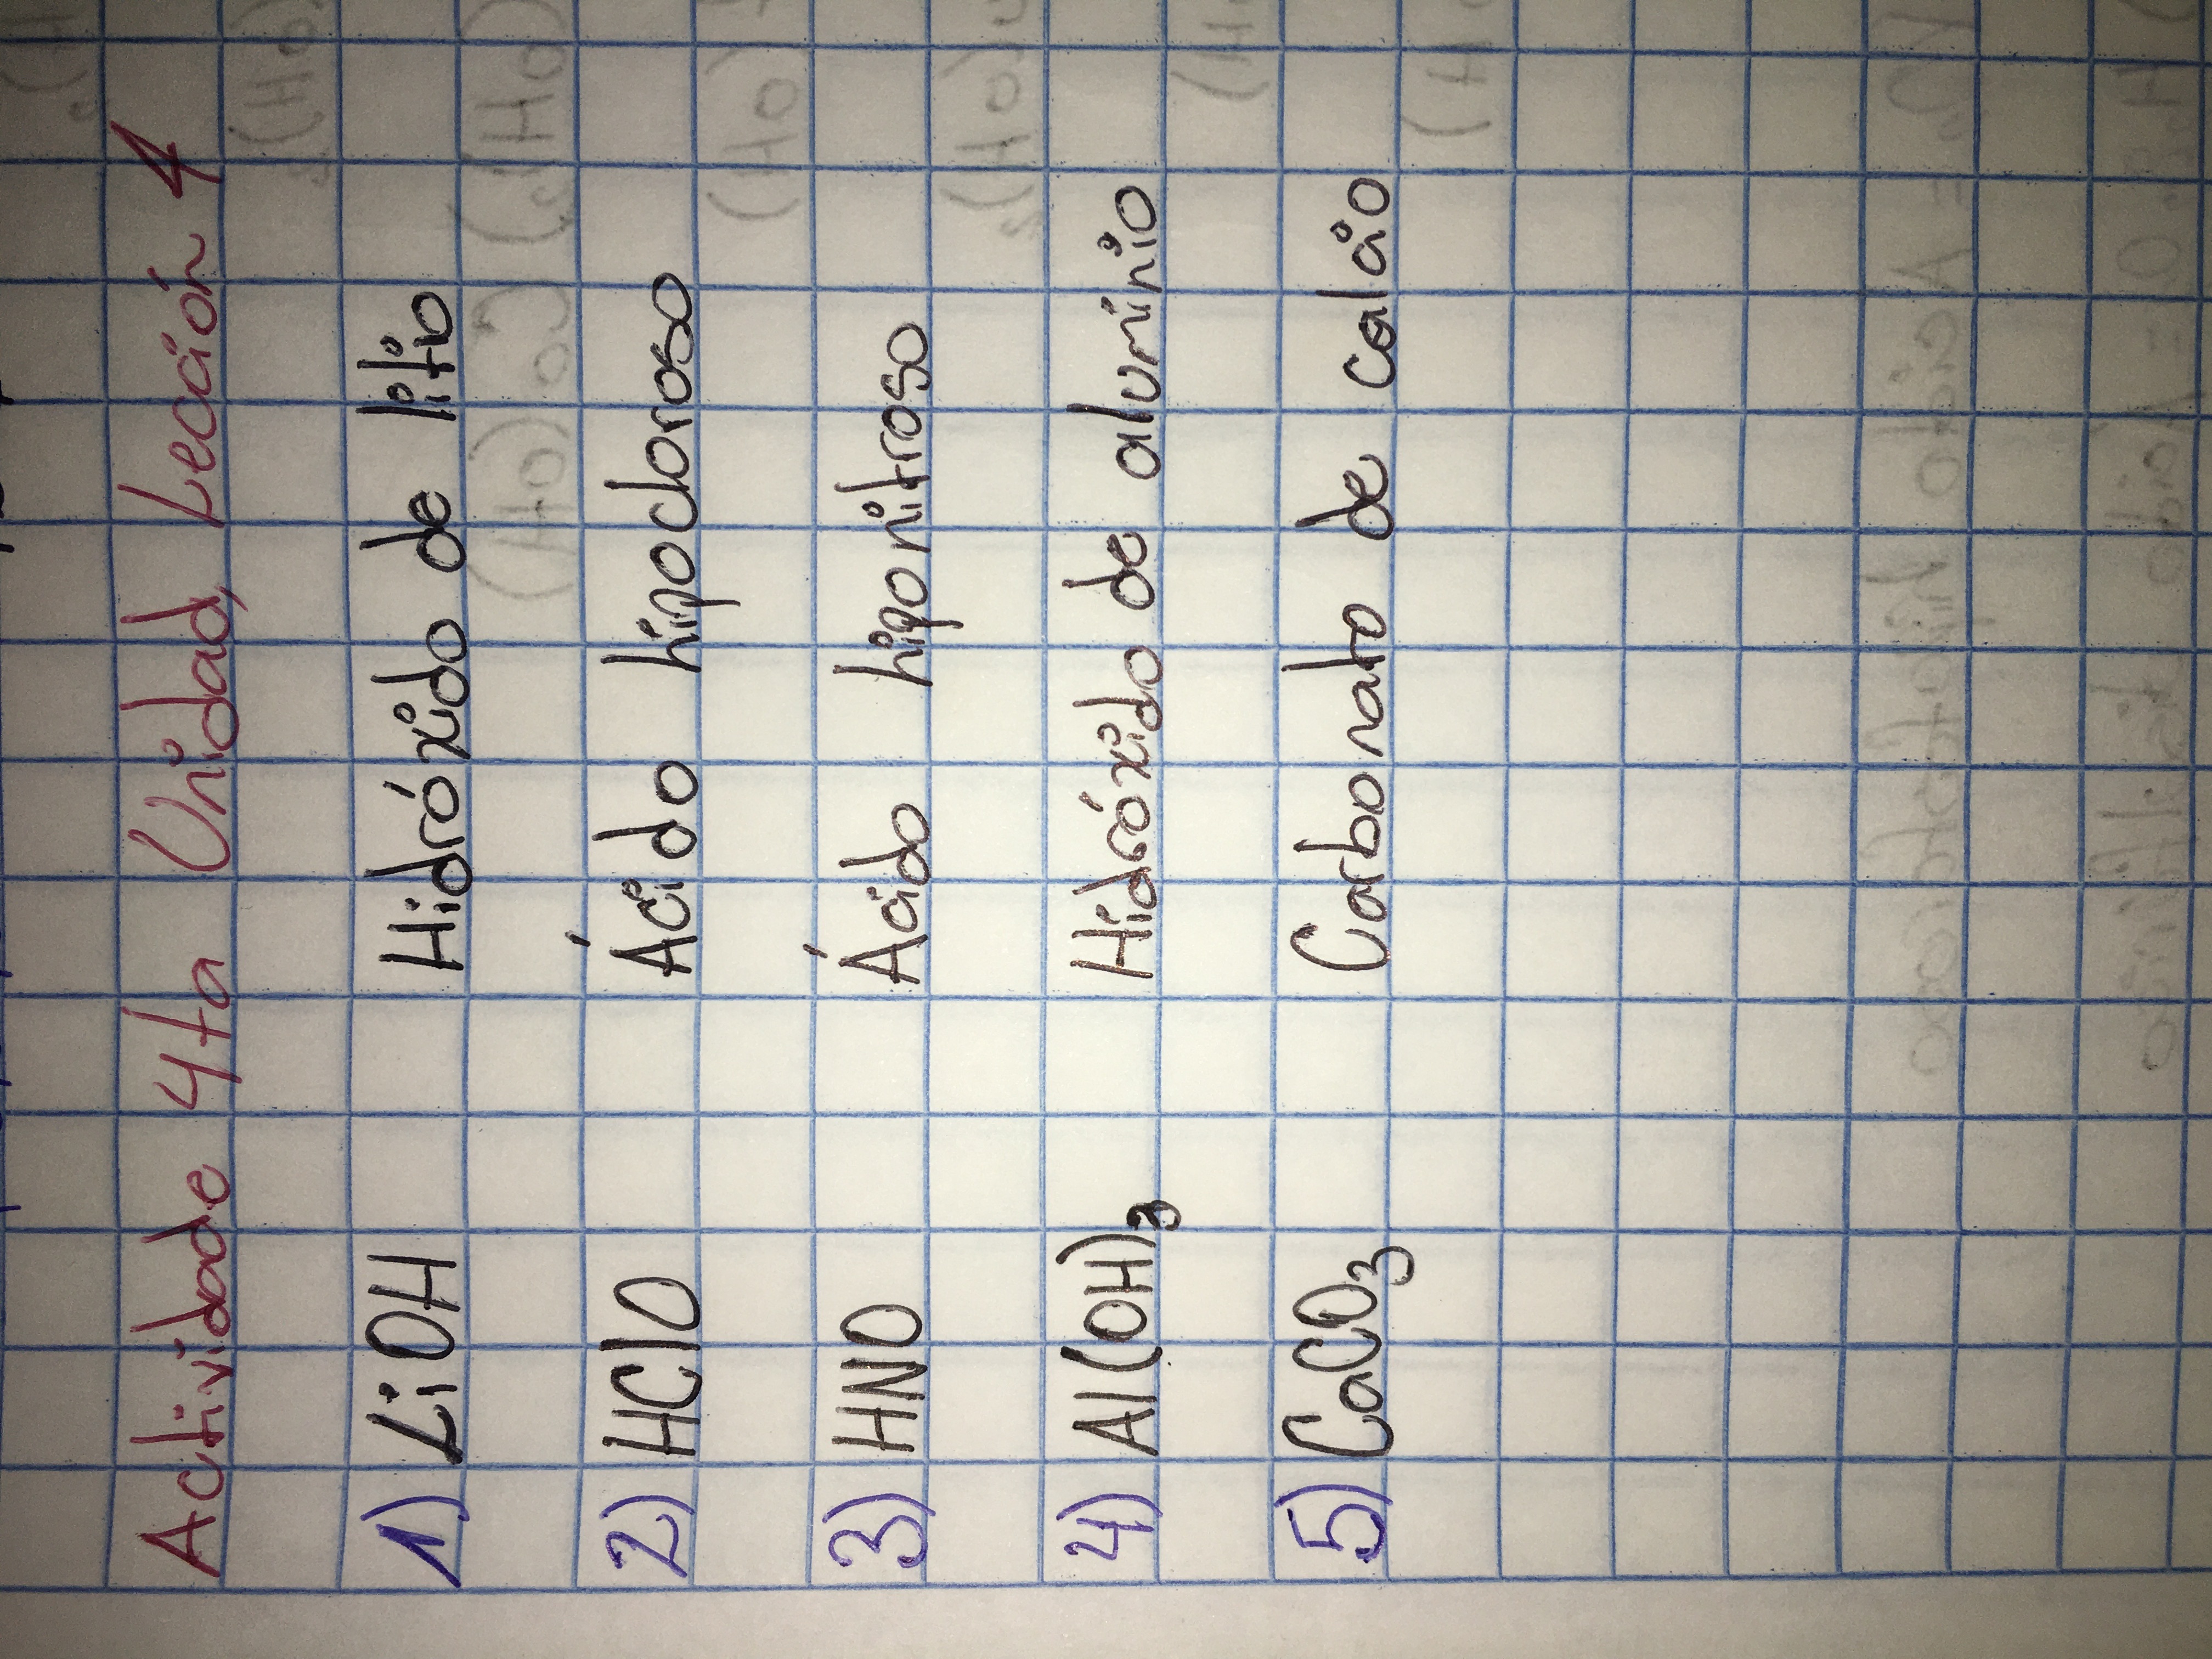 Actividade 4ta Unidad, Lección 4
1) LiOH Hidróxido de litio
2) HClO Ácido hipocloroso
3) HNO Ácido hiponitroso
4) Al(OH)₃ Hidróxido de aluminio
5) CaCO₃ Carbonato de calcio